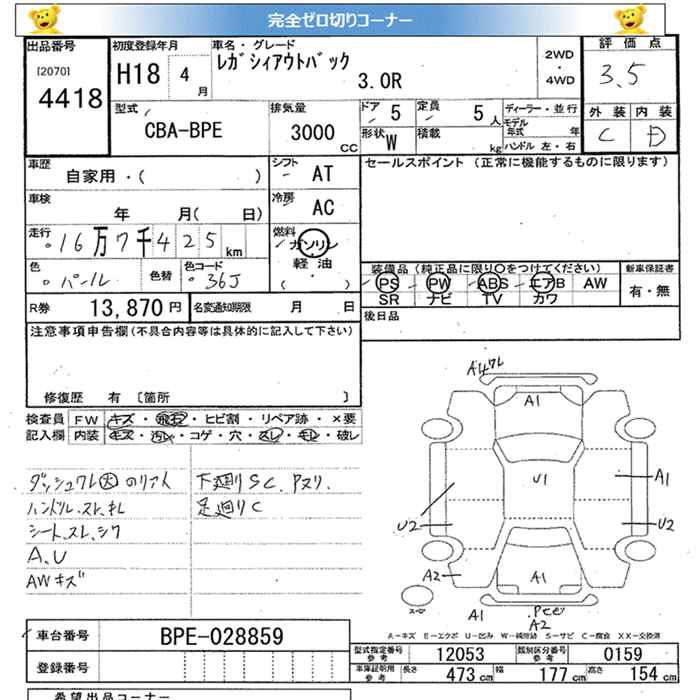 完全ゼロ切りコーナー
出品番号 初度登録年月 車名・グレード 評価点
[2070] 4418 H18 4月 レガシィアウトバック 3.0R 2WD・4WD 3.5
型式 CBA-BPE 排気量 3000CC ドア 5 定員 5人 ディーラー・並行 外装 内装
形状 W 積載 kg モデル年式 年 C D
ハンドル 左・右
車歴 自家用・( ) シフト AT セールスポイント (正常に機能するものに限ります)
車検 年 月( 日) 冷房 AC
走行 16万7千425km 燃料 ガソリン
軽油
( )
色 パール 色替 色コード 36J 装備品 (純正品に限り〇をつけてください) 新車保証書
PS PW ABS エアB AW 有・無
SR ナビ TV カワ
R券 13,870円 名変通知期限 月 日 後日品
注意事項申告欄(不具合内容等は具体的に記入して下さい)
修復歴 有 [箇所 ]
検査員 FW キズ・飛石・ヒビ割・リペア跡・×要
記入欄 内装 キズ・汚レ・コゲ・穴・スレ・キレ・破レ
ハンドル、スレ、キレ 足廻りC
シート、スレ、シワ
A、U
AWキズ
A1
U1
A1
U2 U2
A2 A1
A1
A2
A-キズ E-エクボ U-凹み W-補修跡 S-サビ C-腐食 XX-交換済
車台番号 BPE-028859 型式指定番号 参考 12053 類別区分番号 参考 0159
登録番号 車庫証明用 参考 長さ 473cm 幅 177cm 高さ 154cm
希望出品コーナー